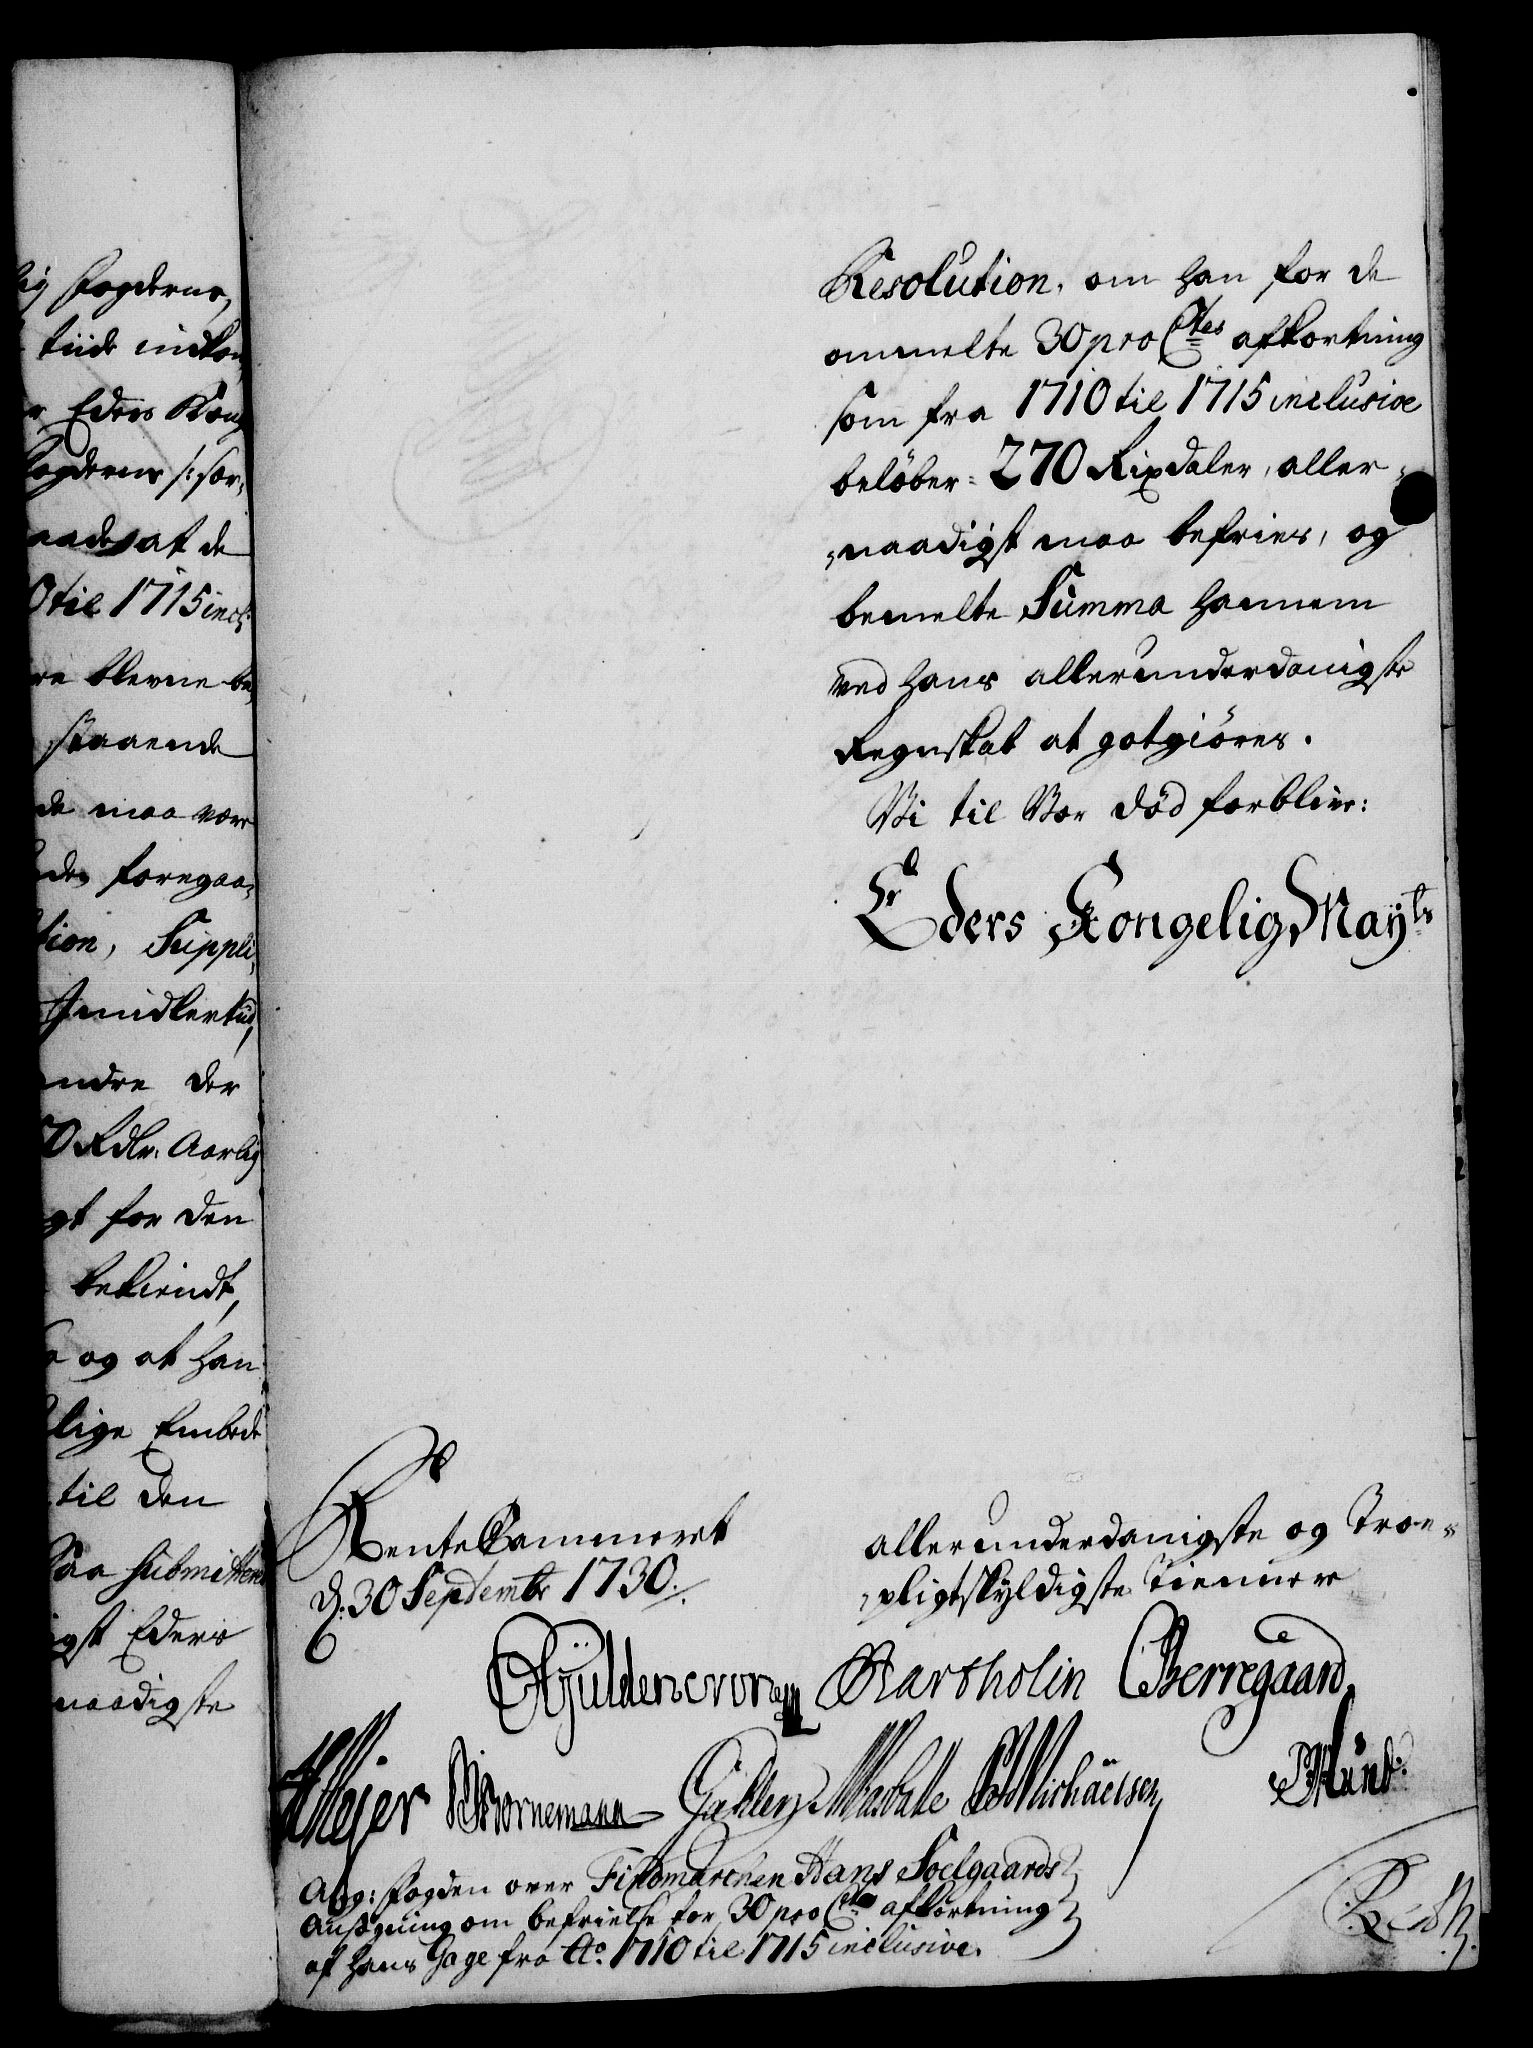 lig Fogderne,
tiide indkom
Eders Kong
Fogderns /: for,
aades at de
0 til 1715 incl:
re blevne be,
staaende
de maa være
des foregaa,
tion, Suppli,
Imidlertiid,
andre der
0 Rdlr: Aarlig
gt for den
bekiendt,
og at han
lige Embede
til den
Saa submitteres
igst Eders
naadigste
Resolution, om han for de
ommelte 30 pro Ctes afkortning
som fra 1710 til 1715 inclusive
beløber: 270 Rixdaler, aller-
naadigst maa befries, og
bemelte Summa hannem
ved hans allerunderdanigste
Regnskab at gotgiøres.
Vi til Vor Død forblive:
Eders Kongelig Mayts
RenteCammeret
d: 30 Septembr 1730.
allerunderdanigste og Troe-
pligtskyldigste Tiennere
Gyldencrone Bartholin Berregaard
Meier Bornemann Gähler Michäelsen Munk
Ang: Fogden over Findmarchen Hans Soelgaards
Ansøgning om befrielse for 30 pro Ctes afkortning
af hans Gage fra Ao 1710 til 1715 inclusive.